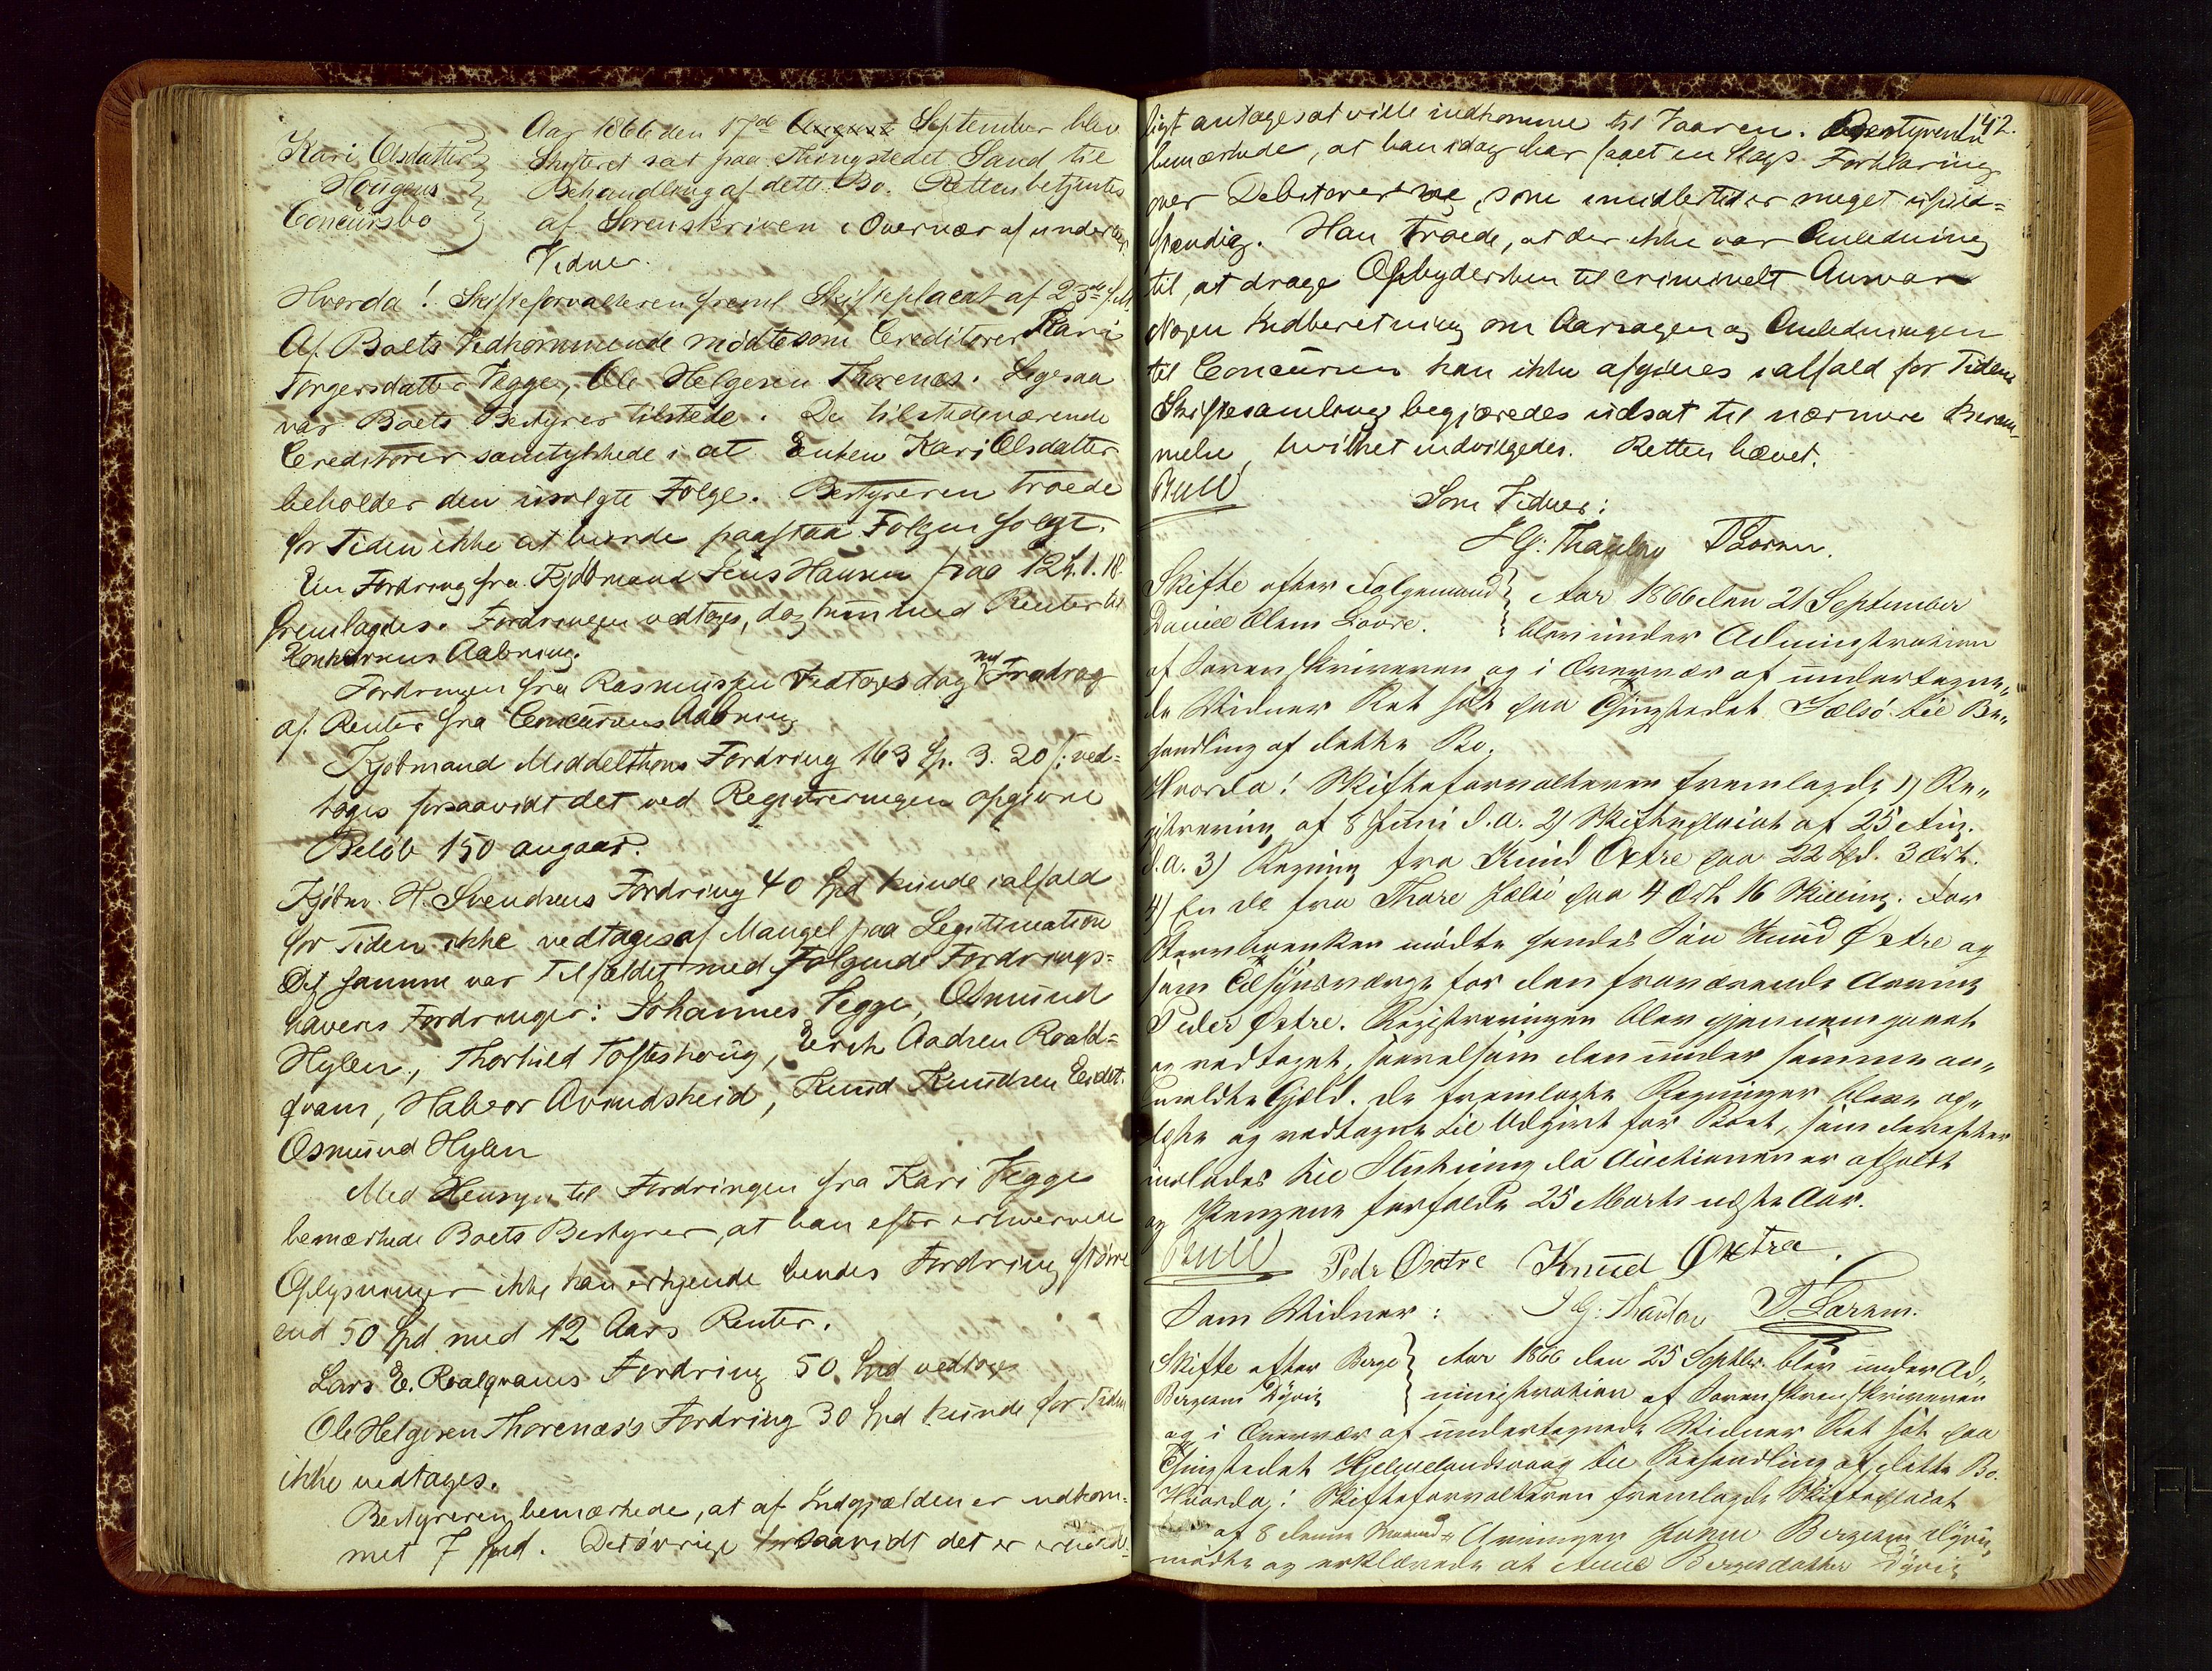 Kari Olsdatter
Hougens
Concursbo
Aar 1866 den 17de August September blev
Skifteret sat paa Thingstedet Sand til
Behandling af dette Bo. Retten betjentes
af Sorenskriven i Overvær af underteg.
Vidner.
Hvorda! Skifteforvalteren freml Skifteplacat af 23de f.M.
Af Boets Vedkommende mødte som Creditorer Kari
Torgersdatter Vegge, Ole Helgesen Thorenæs. Ligesaa
var Boets Bestyrer tilstede. De tilstedeværende
Creditorer samtykkede i at Enken Kari Olsdatter
beholder den usolgte Følge. Bestyreren troede
for Tiden ikke at burde paastaa Følgen solgt.
En Fordring fra Kjøbmand Jens Hansen paa 124.1.18
fremlagdes. Fordringen vedtoges, dog kun med Renter til
Konkursens Aabning.
Fordringen fra Rasmussen Vedtoges dog med Fradrag
af Renter fra Concursens Aabning
Kjøbmand Middelthons Fordring 163 Sp. 3. 20 s: ved=
toges forsaavidt det ved Registreringen opgivne
Beløb 150 angaar.
Kjøbm. H. Svendsens Fordring 40 Spd kunde ialfald
for Tiden ikke vedtages af Mangel paa Legitimation
Det samme var Tilfældet med Følgende Fordrings=
haveres Fordringer: Johannes Vegge, Osmund
Hylen, Thorkild Tofteshoug, Erik Aadsen Roald=
qvam, Halvor Avindsheid, Knud Knudsen Eidet.
Osmund Hylen
Med Hensyn til Fordringen fra Kari Vegge
bemærkede Boets Bestyrer, at han efter erhvervede
Oplysninger ikke kan erkjende hendes Fordring større
end 50 Spd med 12 Aars Renter.
Lars E. Roalqvams Fordring 50 Spd vedtoges
Ole Helgesen Thorenæs's Fordring 30 Spd kunde for Tiden
ikke vedtages.
Bestyreren bemærkede, at af Indgjælden er indkom=
met 7 Spd. Det øvrige forsaavidt det er erholde=
142.
ligt antages at ville indkomme til Vaaren. Bestyreren
bemærkede, at han idag har faaet en Slags Forklaring
over Debitorerne, som imidlertid er meget ufuld=
stændig. Han troede, at der ikke var Anledning
til, at drage Opbydersken til criminelt Ansvar
Nogen Indberetning om Aarsagen og Anledningen
til Concursen kan ikke afgives ialfald for Tiden
Skiftesamling begjæredes udsat til nærmere Beram=
melse, hvilket indvilgedes. Retten hævet.
Bull
Som Vidner:
Skifte efter Følgemand
Daniel Olsen
Aar 1866 den 21 September
blev under Administration
af Sorenskriveren og i Overvær af undertegne„
de Vidner Ret sat paa Thingstedet Jælsø til Be„
handling af dette Bo.
Hvorda! Skifteforvalteren fremlagde 1) Re„
gistrering af 8 Juni d.a. 2) Skifteplacat af 25 Aug.
d.a. 3) Regning fra Knud Øxtre paa 22 Spd. 3 Ort.
4) En do fra Thore Jælsø paa 4 Ort 16 Skilling. For
Sterv boenken mødte hendes Søn Knud Øxtre og
som Tilsynsværge for den fraværende Arving
Peder Øxtre. Registreringen blev gjennemgaaet
og vedtaget, saavelsom den under samme an„
meldte Gjæld. De fremlagte Regninger bleve op„
læste og vedtagne til Udgivt for Boet, som derefter
indlodes til Slutning da Auctionen er afholdt
og Pengene forfalde 25 Marts næste Aar.
Bull Peder Øxtre Knud Øxtra.
Som Vidner:
Skifte efter Berge
Bergesen Dyvig
Aar 1866 den 25 Septbr. blev under Ad„
ministration af Sorenskrenskriveren
og i Overvær af undertegnede Vidner Ret sat paa
Thingstedet Hjelmelandsvaag til Behandling af dette Bo.
Hvorda! Skifteforvalteren fremlagde Skifteplacat
af 8 denne Maaned Arvingen Bergesen Dyvig
mødte og erklærede at Bergesdatter Dyvig